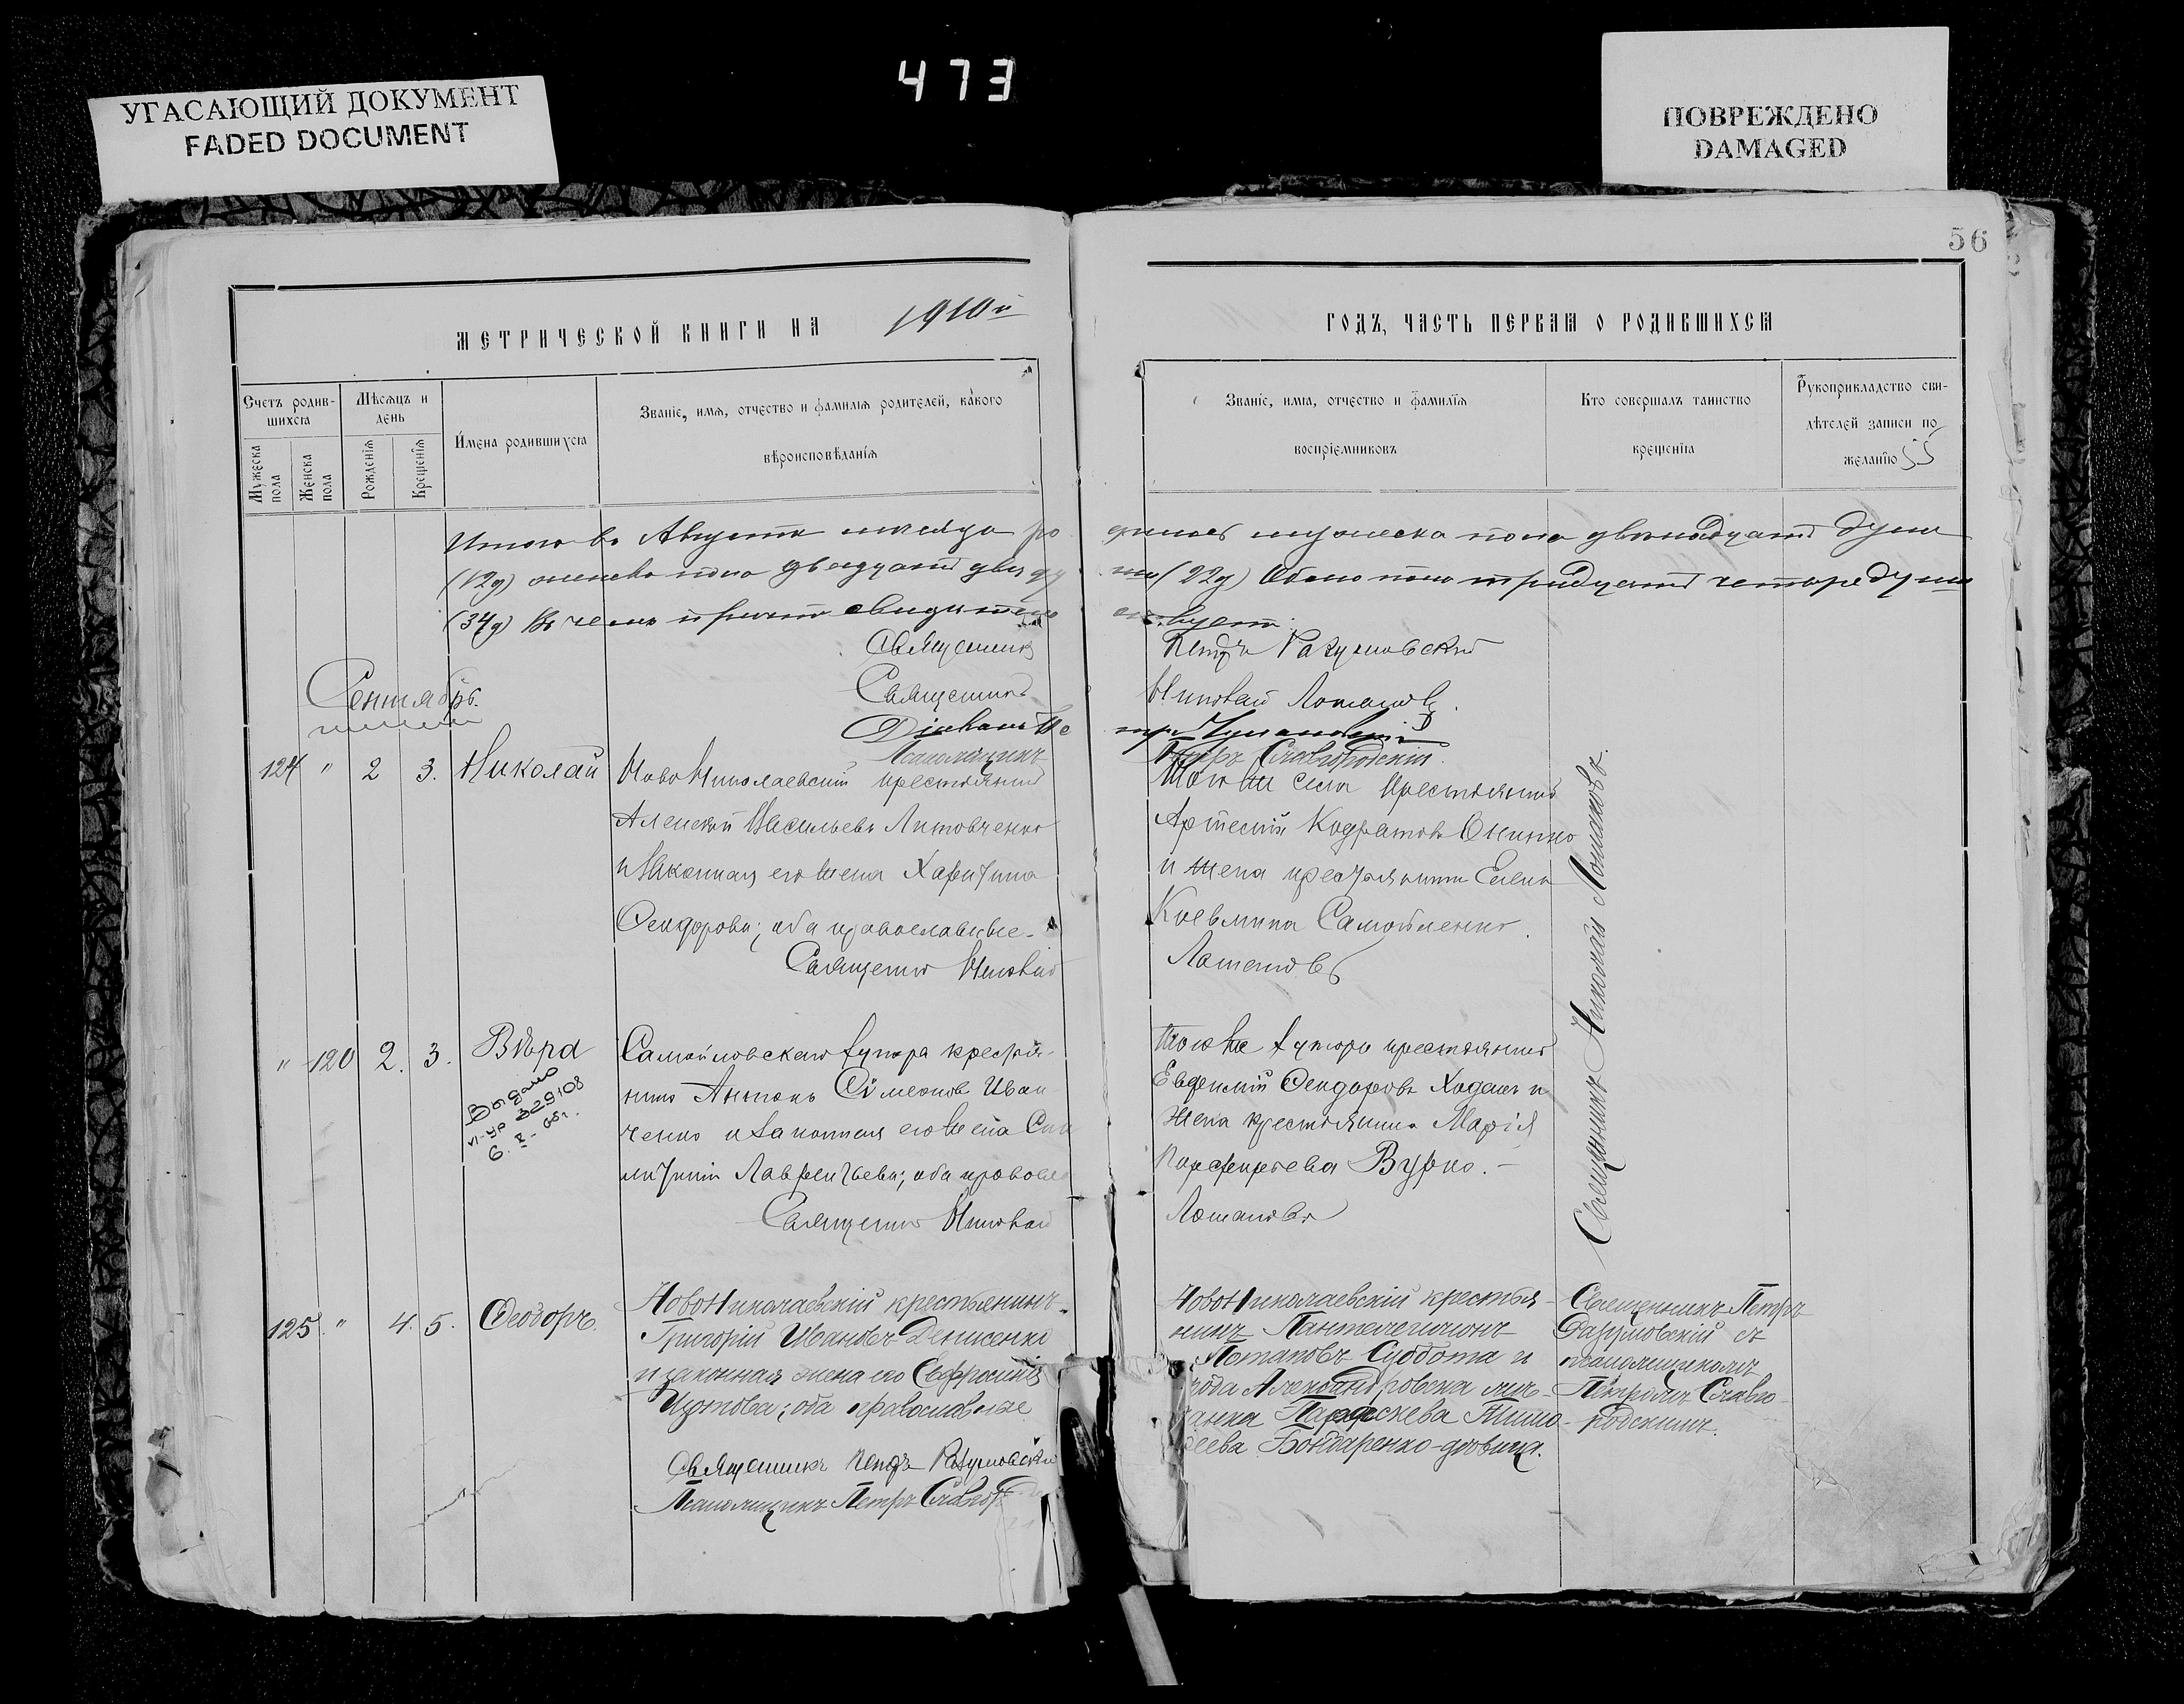 473
УГАСАЮЩИЙ ДОКУМЕНТ
FADED DOCUMENT
ПОВРЕЖДЕНО
DAMAGED
56
МЕТРИЧЕСКОЙ КНИГИ НА 1910й
ГОДЪ, ЧАСТЬ ПЕРВАЯ О РОДИВШИХСЯ
Счетъ родив-
шихся
Мужеска пола
Женска пола
Мѣсяцъ и
день
Рожденія
Крещенія
Имена родившихся
Званіе, имя, отчество и фамилія родителей, какого
вѣроисповѣданія
Званіе, имя, отчество и фамилія
воспріемниковъ
Кто совершалъ таинство
крещенія
Рукоприкладство сви-
дѣтелей записи по
желанію 55
Итого въ Августѣ мѣсяцѣ ро
дилось мужеска пола двѣнадцать душъ
(12д) женска пола двадцать двѣ ду
ши (22д) Обоего пола тридцать четыре души
(34д) Въ чемъ и свидѣтель
ствуетъ:
Священникъ
Петръ Разумовскій
Священникъ
Николай Лошаковъ
Діаконъ
Псаломщикъ
Петръ Славгородскій
Сентябрь.
124 " 2 3. Николай
НовоНиколаевскій крестьянинъ
Алексѣй Васильевъ Литовченко
и законная его жена Харитина
Феодорова; оба православные.
Священникъ Николай
Того же села крестьянинъ
Артемій Кодратовъ Онипко
и жена крестьянина Елена
Козьмина Самойленко.
Лошаковъ
Священникъ Николай Лошаковъ.
" 120 2. 3. Вѣра
Выдано
329108
6.
Самойловскаго хутора крестья-
нинъ Антонъ Симеоновъ Иван
ченко и законная его жена
Лаврентьева; оба правосл
Священникъ Николай
Того же хутора крестьянинъ
Евфимій Феодоровъ Ходакъ и
жена крестьянина Марія
Порфирьева Бурко.-
Лошаковъ
125. " 4. 5. Феодоръ.
НовоНиколаевскій крестьянинъ
Григорій Ивановъ Денисенко
и законная жена его Евфросинія
оба православные
Священникъ Петръ Разумовскій
Псаломщикъ Петръ Славгор
НовоНиколаевскій крестья-
нинъ Пантелеимонъ
Потаповъ Суббота и
рода Александровска мѣщ-
анка Параскева Тимо-
феева Бондаренко-дѣвица.
Священникъ Петръ
Разумовскій съ
псаломщикомъ
Петромъ Славго-
родскимъ.